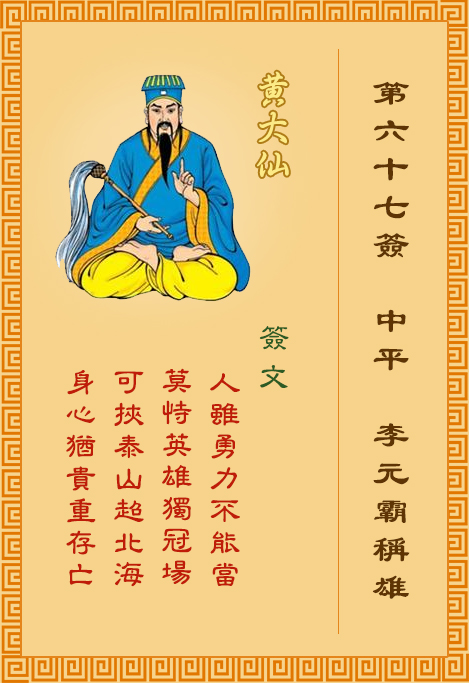 第六十七簽 中平 李元霸稱雄
黃大仙
簽文
人雖勇力不能當
莫恃英雄獨冠場
可挾泰山超北海
身心猶貴重存亡